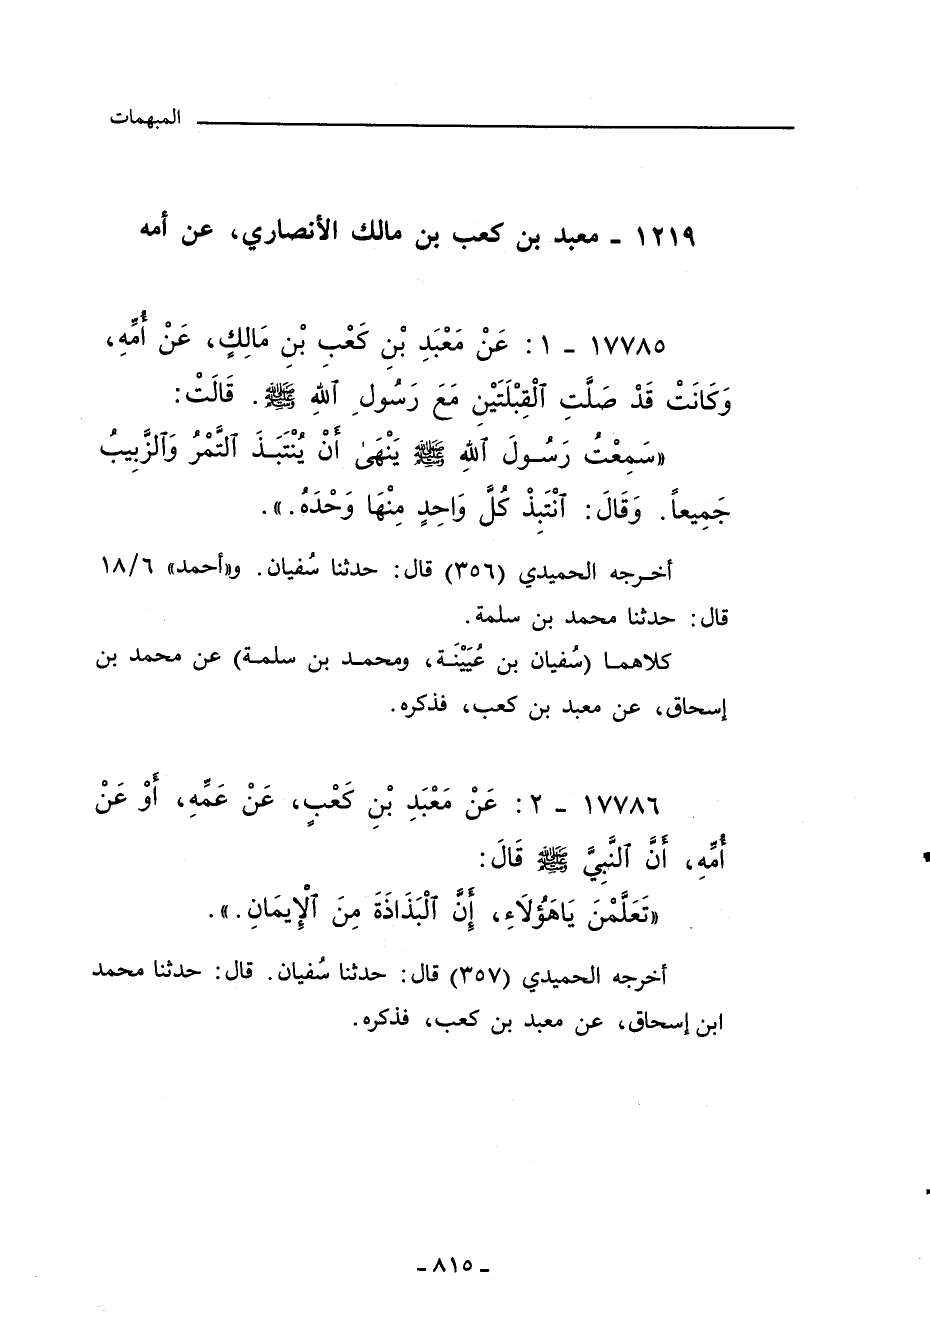 المبهمات
١٢١٩ ـ معبد بن كعب بن مالك الأنصاري، عن أمه
١٧٧٨٥ ـ ١: عَنْ مَعْبَدِ بْنِ كَعْبِ بْنِ مَالِكٍ، عَنْ أُمِّهِ،
وَكَانَتْ قَدْ صَلَّتِ ٱلْقِبْلَتَيْنِ مَعَ رَسُولِ ٱللهِ ﷺ. قَالَتْ:
«سَمِعْتُ رَسُولَ ٱللهِ ﷺ يَنْهَىٰ أَنْ يُنْتَبَذَ ٱلتَّمْرُ وَٱلزَّبِيبُ
جَمِيعاً. وَقَالَ: ٱنْتَبِذْ كُلَّ وَاحِدٍ مِنْهَا وَحْدَهُ.».
أخرجه الحميدي (٣٥٦) قال: حدثنا سُفيان. و«أحمد» ١٨/٦
قال: حدثنا محمد بن سلمة.
كلاهما (سُفيان بن عُيَيْنَة، ومحمد بن سلمة) عن محمد بن
إسحاق، عن معبد بن كعب، فذكره.
١٧٧٨٦ ـ ٢: عَنْ مَعْبَدِ بْنِ كَعْبٍ، عَنْ عَمِّهِ، أَوْ عَنْ
أُمِّهِ، أَنَّ ٱلنَّبِيَّ ﷺ قَالَ:
«تَعَلَّمْنَ يَاهَؤُلَاءِ، إِنَّ ٱلْبَذَاذَةَ مِنَ ٱلْإِيمَانِ.».
أخرجه الحميدي (٣٥٧) قال: حدثنا سُفيان. قال: حدثنا محمد
ابن إسحاق، عن معبد بن كعب، فذكره.
ـ ٨١٥ ـ